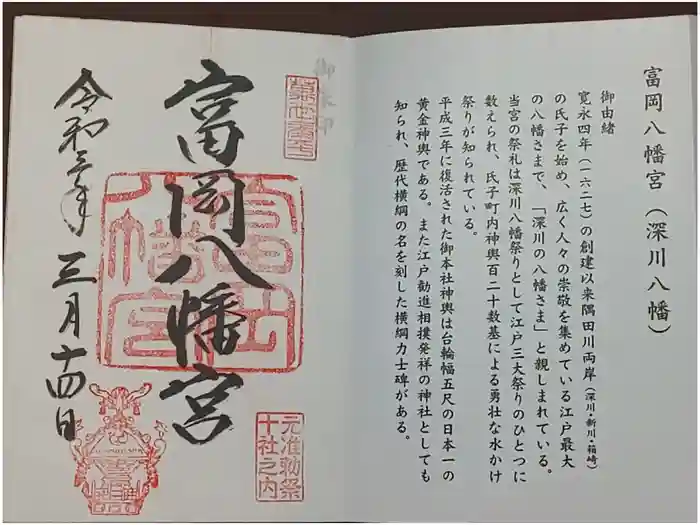 富岡八幡宮（深川八幡）
御由緒
寛永四年（一六二七）の創建以来隅田川両岸（深川・新川・箱崎）
の氏子を始め、広く人々の崇敬を集めている江戸最大
の八幡さまで、「深川の八幡さま」と親しまれている。
当宮の祭礼は深川八幡祭りとして江戸三大祭りのひとつに
数えられ、氏子町内神輿百二十数基による勇壮な水かけ
祭りが知られている。
平成三年に復活された御本社神輿は台輪幅五尺の日本一の
黄金神輿である。また江戸勧進相撲発祥の神社としても
知られ、歴代横綱の名を刻した横綱力士碑がある。
富岡八幡宮
富岡八幡宮
元准勅祭
十社之内
令和三年
三月十四日